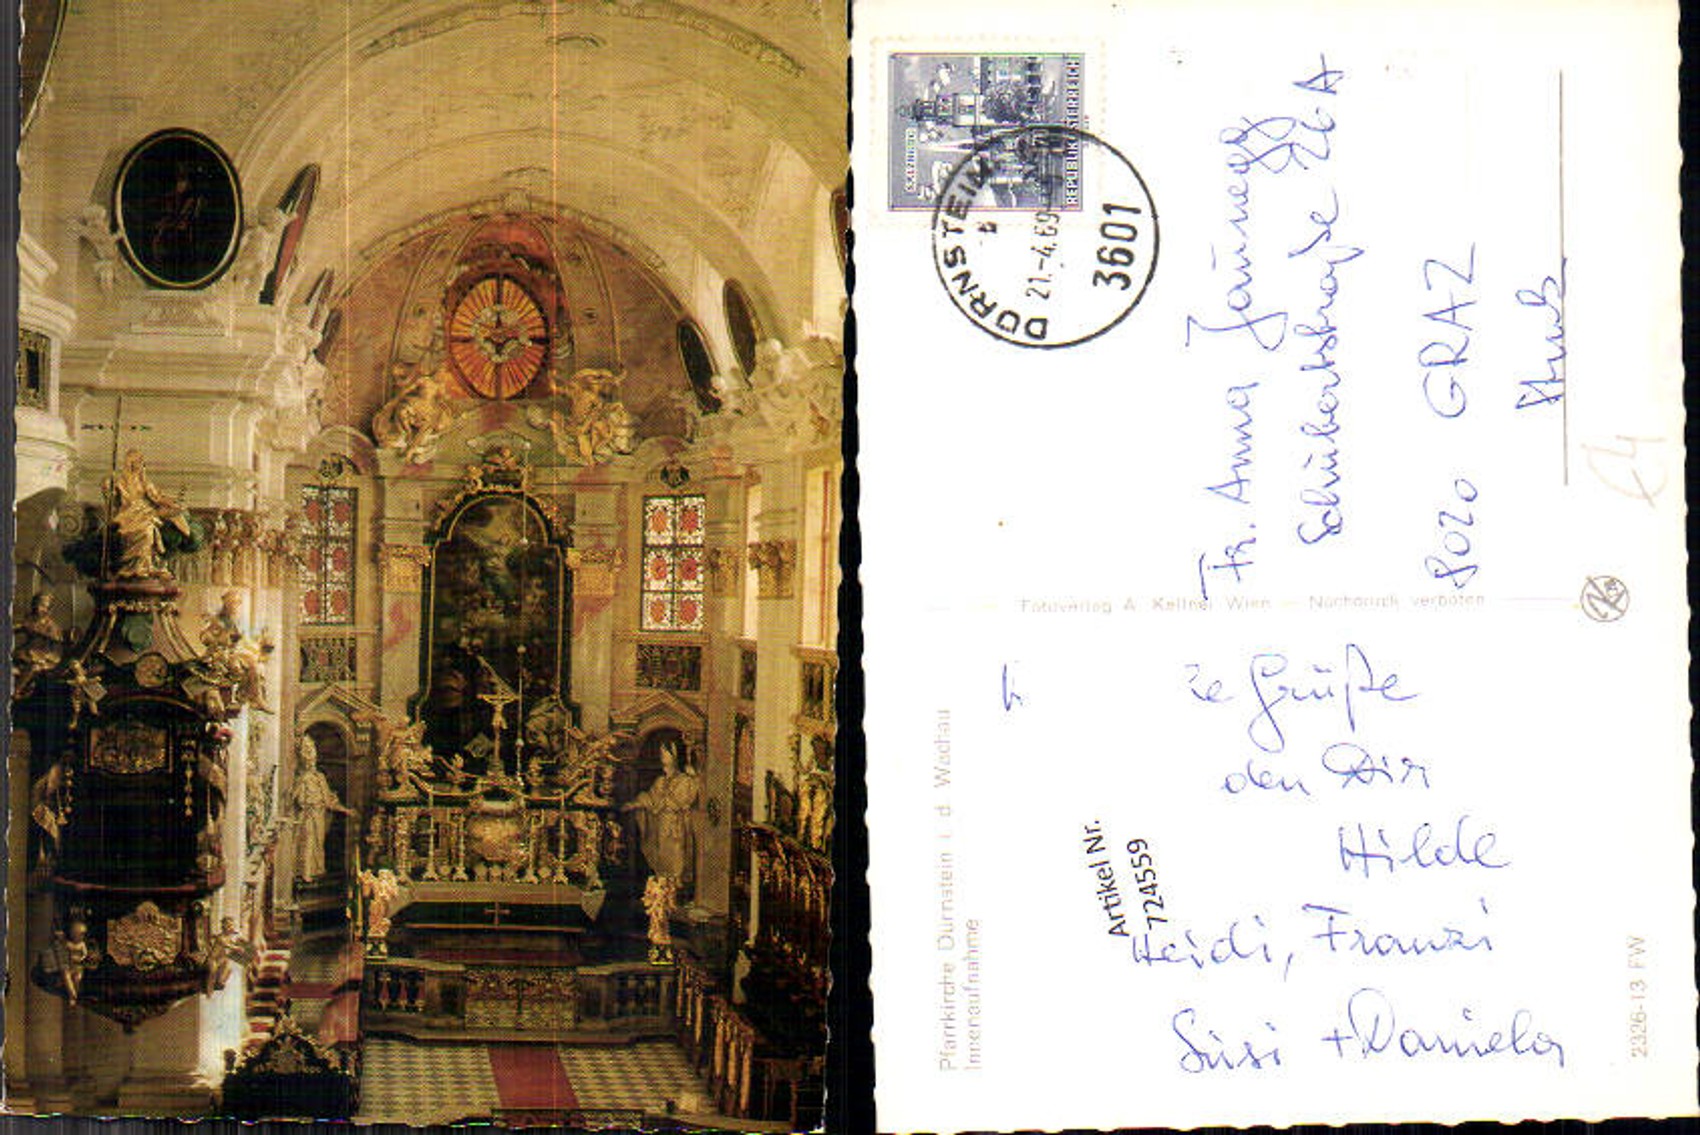 SALZBURG
REPUBLIK ÖSTERREICH
DÜRNSTEIN
21.-4.69
3601
Fr. Anna
Schubertstraße 26A
8020 GRAZ
Fotoverlag A. Kellner Wien — Nachdruck verboten
Pfarrkirche Dürnstein i. d. Wachau
Innenaufnahme
Artikel Nr.
724559
Grüße
Hilde
Heidi, Franzi
Susi + Daniela
2326-13 FW